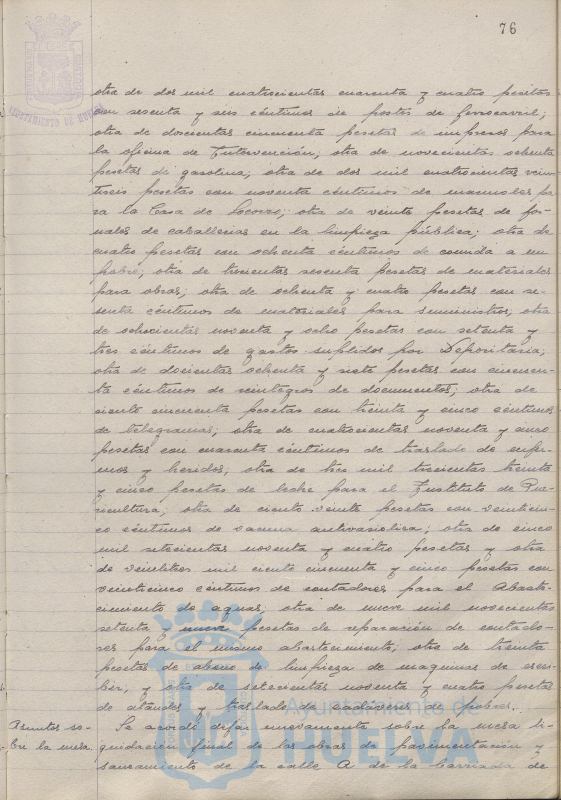 76
AYUNTAMIENTO DE HUELVA
otra de dos mil cuatrocientas cuarenta y cuatro pesetas
con sesenta y seis céntimos de portes de ferrocarril;
otra de doscientas cincuenta pesetas de impresos para
la oficina de Intervención; otra de novecientas ochenta
pesetas de gasolina; otra de dos mil cuatrocientas vein-
tiseis pesetas con noventa céntimos de pa
ra la Casa de Socorro; otra de veinte pesetas de jor-
nales de caballerias en la limpieza pública; otra de
cuatro pesetas con ochenta céntimos de comida a un
pobre; otra de trescientas sesenta pesetas de materiales
para obras; otra de ochenta y cuatro pesetas con se-
senta céntimos de materiales para suministros; otra
de ochocientas noventa y ocho pesetas con setenta y
tres céntimos de gastos suplidos por Depositaria;
otra de doscientas ochenta y siete pesetas con cincuen-
ta céntimos de reintegros de documentos; otra de
ciento cincuenta pesetas con treinta y cinco céntimos
de telegramas; otra de cuatrocientas noventa y cinco
pesetas con cuarenta céntimos de traslado de enfer-
mos y heridos; otra de tres mil trescientas treinta
y cinco pesetas de leche para el Instituto de Pue-
ricultura; otra de ciento veinte pesetas con veinticin-
co céntimos de vacuna antivariolica; otra de cinco
mil setecientas noventa y cuatro pesetas y otra
de veintitres mil ciento cincuenta y cinco pesetas con
veinticinco céntimos de contadores para el Abaste-
cimiento de aguas; otra de nueve mil novecientas
setenta y nueve pesetas de reparación de contado-
res para el mismo abastecimiento; otra de treinta
pesetas de abono de limpieza de maquinas de escri-
bir, y otra de setecientas noventa y cuatro pesetas
de ataudes y traslado de cadáveres de pobres.
Asuntos so-
bre la mesa.
Se acordó dejar nuevamente sobre la mesa li-
quidación final de las obras de pavimentación y
saneamiento de la calle A de la barriada de
Ayuntamiento de
HUELVA